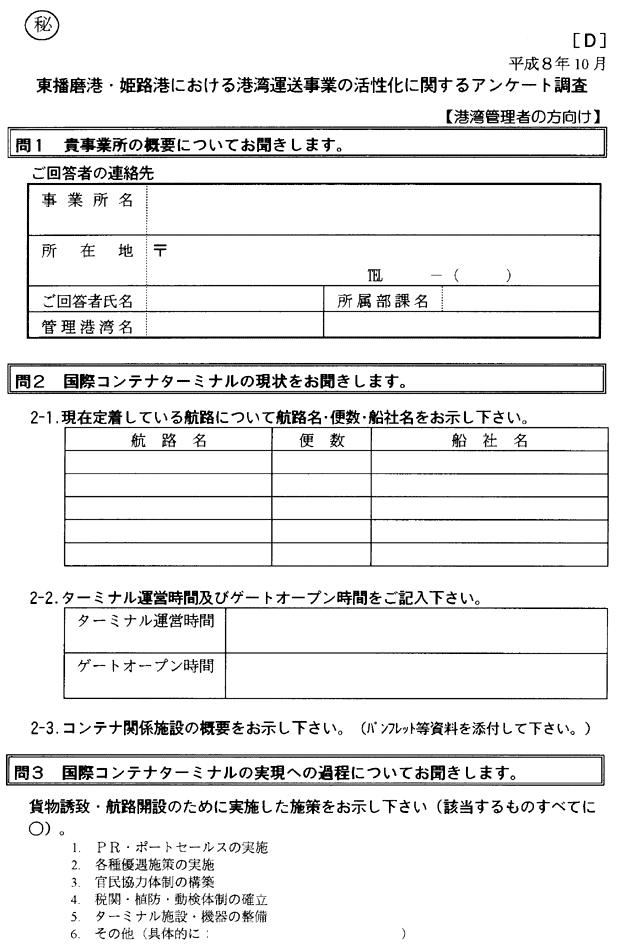 秘
[D]
平成8年10月
東播磨港・姫路港における港湾運送事業の活性化に関するアンケート調査
【港湾管理者の方向け】
問1 貴事業所の概要についてお聞きします。
ご回答者の連絡先
事業所名
所在地 〒
℡ －（ ）
ご回答者氏名 所属部課名
管理港湾名
問2 国際コンテナターミナルの現状をお聞きします。
2-1.現在定着している航路について航路名･便数･船社名をお示し下さい。
航路名 便数 船社名
2-2.ターミナル運営時間及びゲートオープン時間をご記入下さい。
ターミナル運営時間
ゲートオープン時間
2-3.コンテナ関係施設の概要をお示し下さい。（ﾊﾟﾝﾌﾚｯﾄ等資料を添付して下さい。）
問3 国際コンテナターミナルの実現への過程についてお聞きします。
貨物誘致・航路開設のために実施した施策をお示し下さい（該当するものすべてに
○）。
1. ＰＲ・ポートセールスの実施
2. 各種優遇施策の実施
3. 官民協力体制の構築
4. 税関・植防・動検体制の確立
5. ターミナル施設・機器の整備
6. その他（具体的に： ）